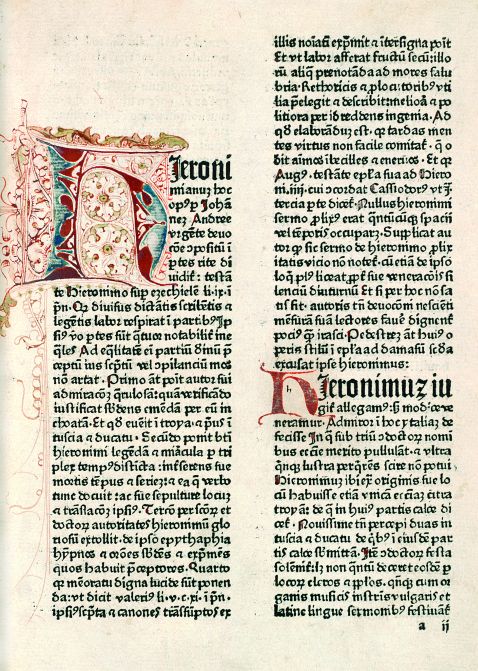 Jeroni
mianuz hoc
opus ꝑ Johā
nez Andree
vrgēte deuo
cōe ꝯpositū ī
ꝑtes rite di
uidit: testā
te Hieronimo suꝑ ezechielē li.ix.ī
pn̄. Qꝫ diuisus dictātis scribētis ⁊
legētis labor respirat ī partibus Ipi
us vo ꝑtes sūt q̄tuor notabilit̄ ine
q̄les. Ad eq̄litatē ei partiū diuinū p̄
ceptū ius scptū vel ꝯpilanciū mos
nō artat. Primo āt ponit autor sui
admiracōꝫ q̄rulosā: quā verificādo
iustificat sb̄dens cmēdā per eū in
choatā. Et qd̄ euēit ī troya. ⁊ p̄us ī
tuscia ⁊ ducatu. Secūdo ponit bt̄i
hieronimi legēdā ⁊ miracula ꝑ tri
plex tempus distīcta: inserens sue
mortis tempus ⁊ seriem: ⁊ ea q̄ verbo
tenus docuit: ac sue sepulture locum
⁊ translacōꝫ ipsius. Tercō per scoꝝ et
doctoꝝ autoritates hieronimū glo
riosū extollit. de ipso epythaphia
hypnos ⁊ orōnes sb̄dēs ⁊ expmēs
quos habuit p̄ceptores. Quarto
q̄ memoratu digna lucide sūt ponen
da: vt dicit valerius li.v.c.xi.ī pn̄.
ipsius scpta ⁊ canones trāsūptos ex
illis noīati exp̄mit ⁊ ītersigna poīt
Et vt labor afferat fructū secuꝝ: illo
rū aliqꝫ prenotāda ad mores salu
bria. Rethoricis ⁊ ploꝗutoribus vti
lia p̄elegit ⁊ describit: meliora ⁊ po
litiora per id reddens ingenia. Ad
qd̄ elaborādū est. qꝫ tardas men
tes virtus non facile comitat̄. q̄ o
dit aīmos ībecilles ⁊ eneruos. Et qꝫ
Augus. testāte epla sua ad Hiero
nim. iiii. cui ꝯcordat Cassiodorus vt ī
tercia ꝑte dicet̄. Nullus hieronimi
sermo plixus erat quātūcūqꝫ spacij
vel tēporis occuparz. Supplicat au
tor qꝫ sic sermo de hieronimo plix
itatis vicio nō notet̄. cū etiā de ipso
loqui plus liceat ꝓpter sue veneracōis si
lenciū diuturnū Et si per hoc nō sa
tis fit. autoris tn̄ deuocōem nescienti
mēsurā suā lectores fauere dignent̄
poci⁹ q̄ꝫ irasci. Pedestrez āt huius o
peris stilū ī epl̄a ad damasū sc̄da
excusat ipse hieronimus:
Hieronimuz iu
giter allegamus: sꝫ modice ve
neramur. Admitor ī hoc ⁊ taliaz de
fecisse In qꝫ sub triū ꝯ doctoꝝ nomī
bus ecc̄ie merito pullulāt. ⁊ vltra
q̄ꝫcunqꝫ lustra perquirēs scire nō potui
Hieronimuz ibi eius originis fue lo
cū habuisse etiā vnicā ecc̄iaꝫ citra
troyāz de q̄ in huius partis calce di
cet̄. Nouissime tn̄ percepi duas in
tuscia ⁊ ducatu de qbus ī eiusdē par
tis calce sb̄mittā. Itē ꝯ doctoꝝ festa
solēnīt̄: Iz non q̄ntū deceret eosdē ꝑ
locoꝝ cleros ⁊ ppl̄os. quīqꝫ cum or
ganis musicis instrūs vulgaris et
latine lingue sermonibus festiuāt̄
a ij